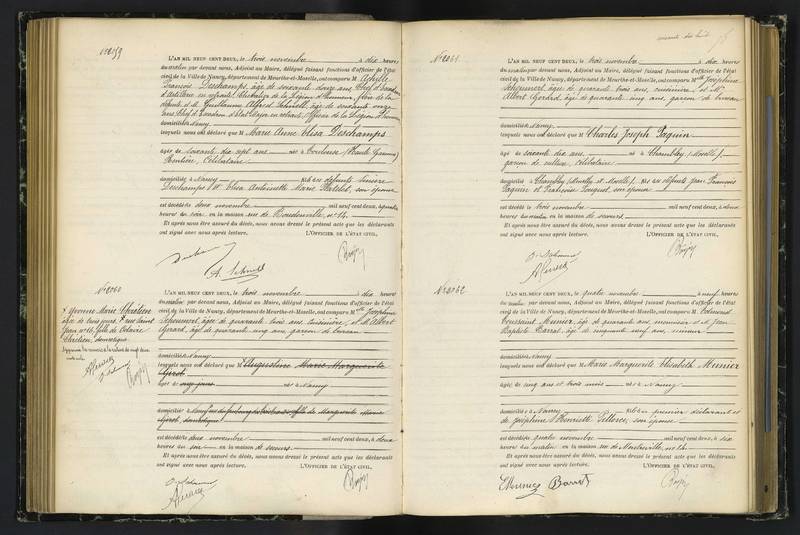 N° 2059
L'AN MIL NEUF CENT DEUX, le trois novembre à dix heures
du matin par devant nous, Adjoint au Maire, délégué faisant fonctions d'officier de l'état
civil de la Ville de Nancy, département de Meurthe-et-Moselle, ont comparu M. Achille
François Deschamps, âgé de soixante douze ans, Chef d'Escadron
d'artillerie en retraite, Chevalier de la Légion d'honneur, frère de la
défunte, et M. Guillaume Alfred Schnell, âgé de soixante onze
ans, Chef d'Escadron d'Etat Major en retraite, Officier de la Légion d'honneur
domiciliés à Nancy
lesquels nous ont déclaré que M Marie Anne Elisa Deschamps
âgée de soixante dix sept ans née à Toulouse (Haute Garonne)
Rentière, Célibataire
domiciliée à Nancy fille des défunts
Deschamps et Antoinette Marie son épouse
est décédée deux novembre mil neuf cent deux, à quatre
heures du soir en la maison rue de Boudonville, n° 14.
Et après nous être assuré du décès, nous avons dressé le présent acte que les déclarants
ont signé avec nous après lecture. L'OFFICIER DE L'ÉTAT CIVIL,
A. Schnell
N° 2060
L'AN MIL NEUF CENT DEUX, le trois novembre à dix heures
du matin par devant nous, Adjoint au Maire, délégué faisant fonctions d'officier de l'état
civil de la Ville de Nancy, département de Meurthe-et-Moselle, ont comparu M.lle Joséphine
âgée de quarante trois ans, cuisinière, et M. Albert
Gérard, âgé de quarante cinq ans, garçon de bureau
domiciliés à Nancy
lesquels nous ont déclaré que M Augustine Marie Marguerite
Girot
âgée de onze jours née à Nancy
domiciliée à Nancy fille de Marguerite
Girot, domestique
est décédée deux novembre mil neuf cent deux, à deux
heures du soir en la maison de secours
Et après nous être assuré du décès, nous avons dressé le présent acte que les déclarants
ont signé avec nous après lecture. L'OFFICIER DE L'ÉTAT CIVIL,
Yvonne Marie Chrétien
âgée de trois jours, rue Saint
Jean n° 16, fille de
Chrétien, domestique
N° 2061
L'AN MIL NEUF CENT DEUX, le trois novembre à dix heures
du matin par devant nous, Adjoint au Maire, délégué faisant fonctions d'officier de l'état
civil de la Ville de Nancy, département de Meurthe-et-Moselle, ont comparu M.lle Joséphine
âgée de quarante trois ans, cuisinière, et M.
Albert Gérard, âgé de quarante cinq ans, garçon de bureau
domiciliés à Nancy
lesquels nous ont déclaré que M Charles Joseph Paquin
âgé de soixante dix ans né à Chambley (Moselle)
garçon de culture, célibataire
domicilié à Chambley (Meurthe et Moselle) fils des défunts Jean François
Paquin et Françoise son épouse
est décédé trois novembre mil neuf cent deux, à deux
heures du matin en la maison de secours
Et après nous être assuré du décès, nous avons dressé le présent acte que les déclarants
ont signé avec nous après lecture. L'OFFICIER DE L'ÉTAT CIVIL,
N° 2062
L'AN MIL NEUF CENT DEUX, le quatre novembre à neuf heures
du matin par devant nous, Adjoint au Maire, délégué faisant fonctions d'officier de l'état
civil de la Ville de Nancy, département de Meurthe-et-Moselle, ont comparu M. Edmond
Toussaint Munier, âgé de quarante ans, menuisier, et M. Jean
Baptiste Barrat, âgé de cinquante neuf ans, mineur
domiciliés à Nancy
lesquels nous ont déclaré que M Marie Marguerite Elisabeth Munier
âgée de cinq ans et trois mois née à Nancy
domiciliée à Nancy fille du premier déclarant et
de Joséphine Henriette son épouse
est décédée quatre novembre mil neuf cent deux, à six
heures du matin en la maison rue de
Et après nous être assuré du décès, nous avons dressé le présent acte que les déclarants
ont signé avec nous après lecture. L'OFFICIER DE L'ÉTAT CIVIL,
EMunier Barrat